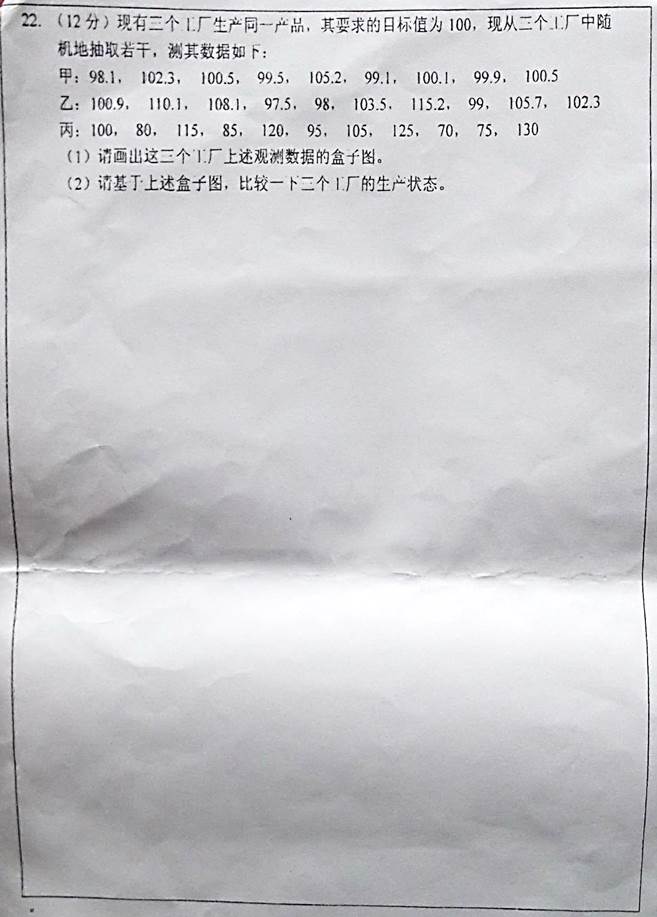 22. （12分）现有三个工厂生产同一产品，其要求的目标值为 100，现从三个工厂中随
机地抽取若干，测其数据如下：
甲：98.1， 102.3， 100.5， 99.5， 105.2， 99.1， 100.1， 99.9， 100.5
乙：100.9， 110.1， 108.1， 97.5， 98， 103.5， 115.2， 99， 105.7， 102.3
丙：100， 80， 115， 85， 120， 95， 105， 125， 70， 75， 130
（1）请画出这三个工厂上述观测数据的盒子图。
（2）请基于上述盒子图，比较一下三个工厂的生产状态。